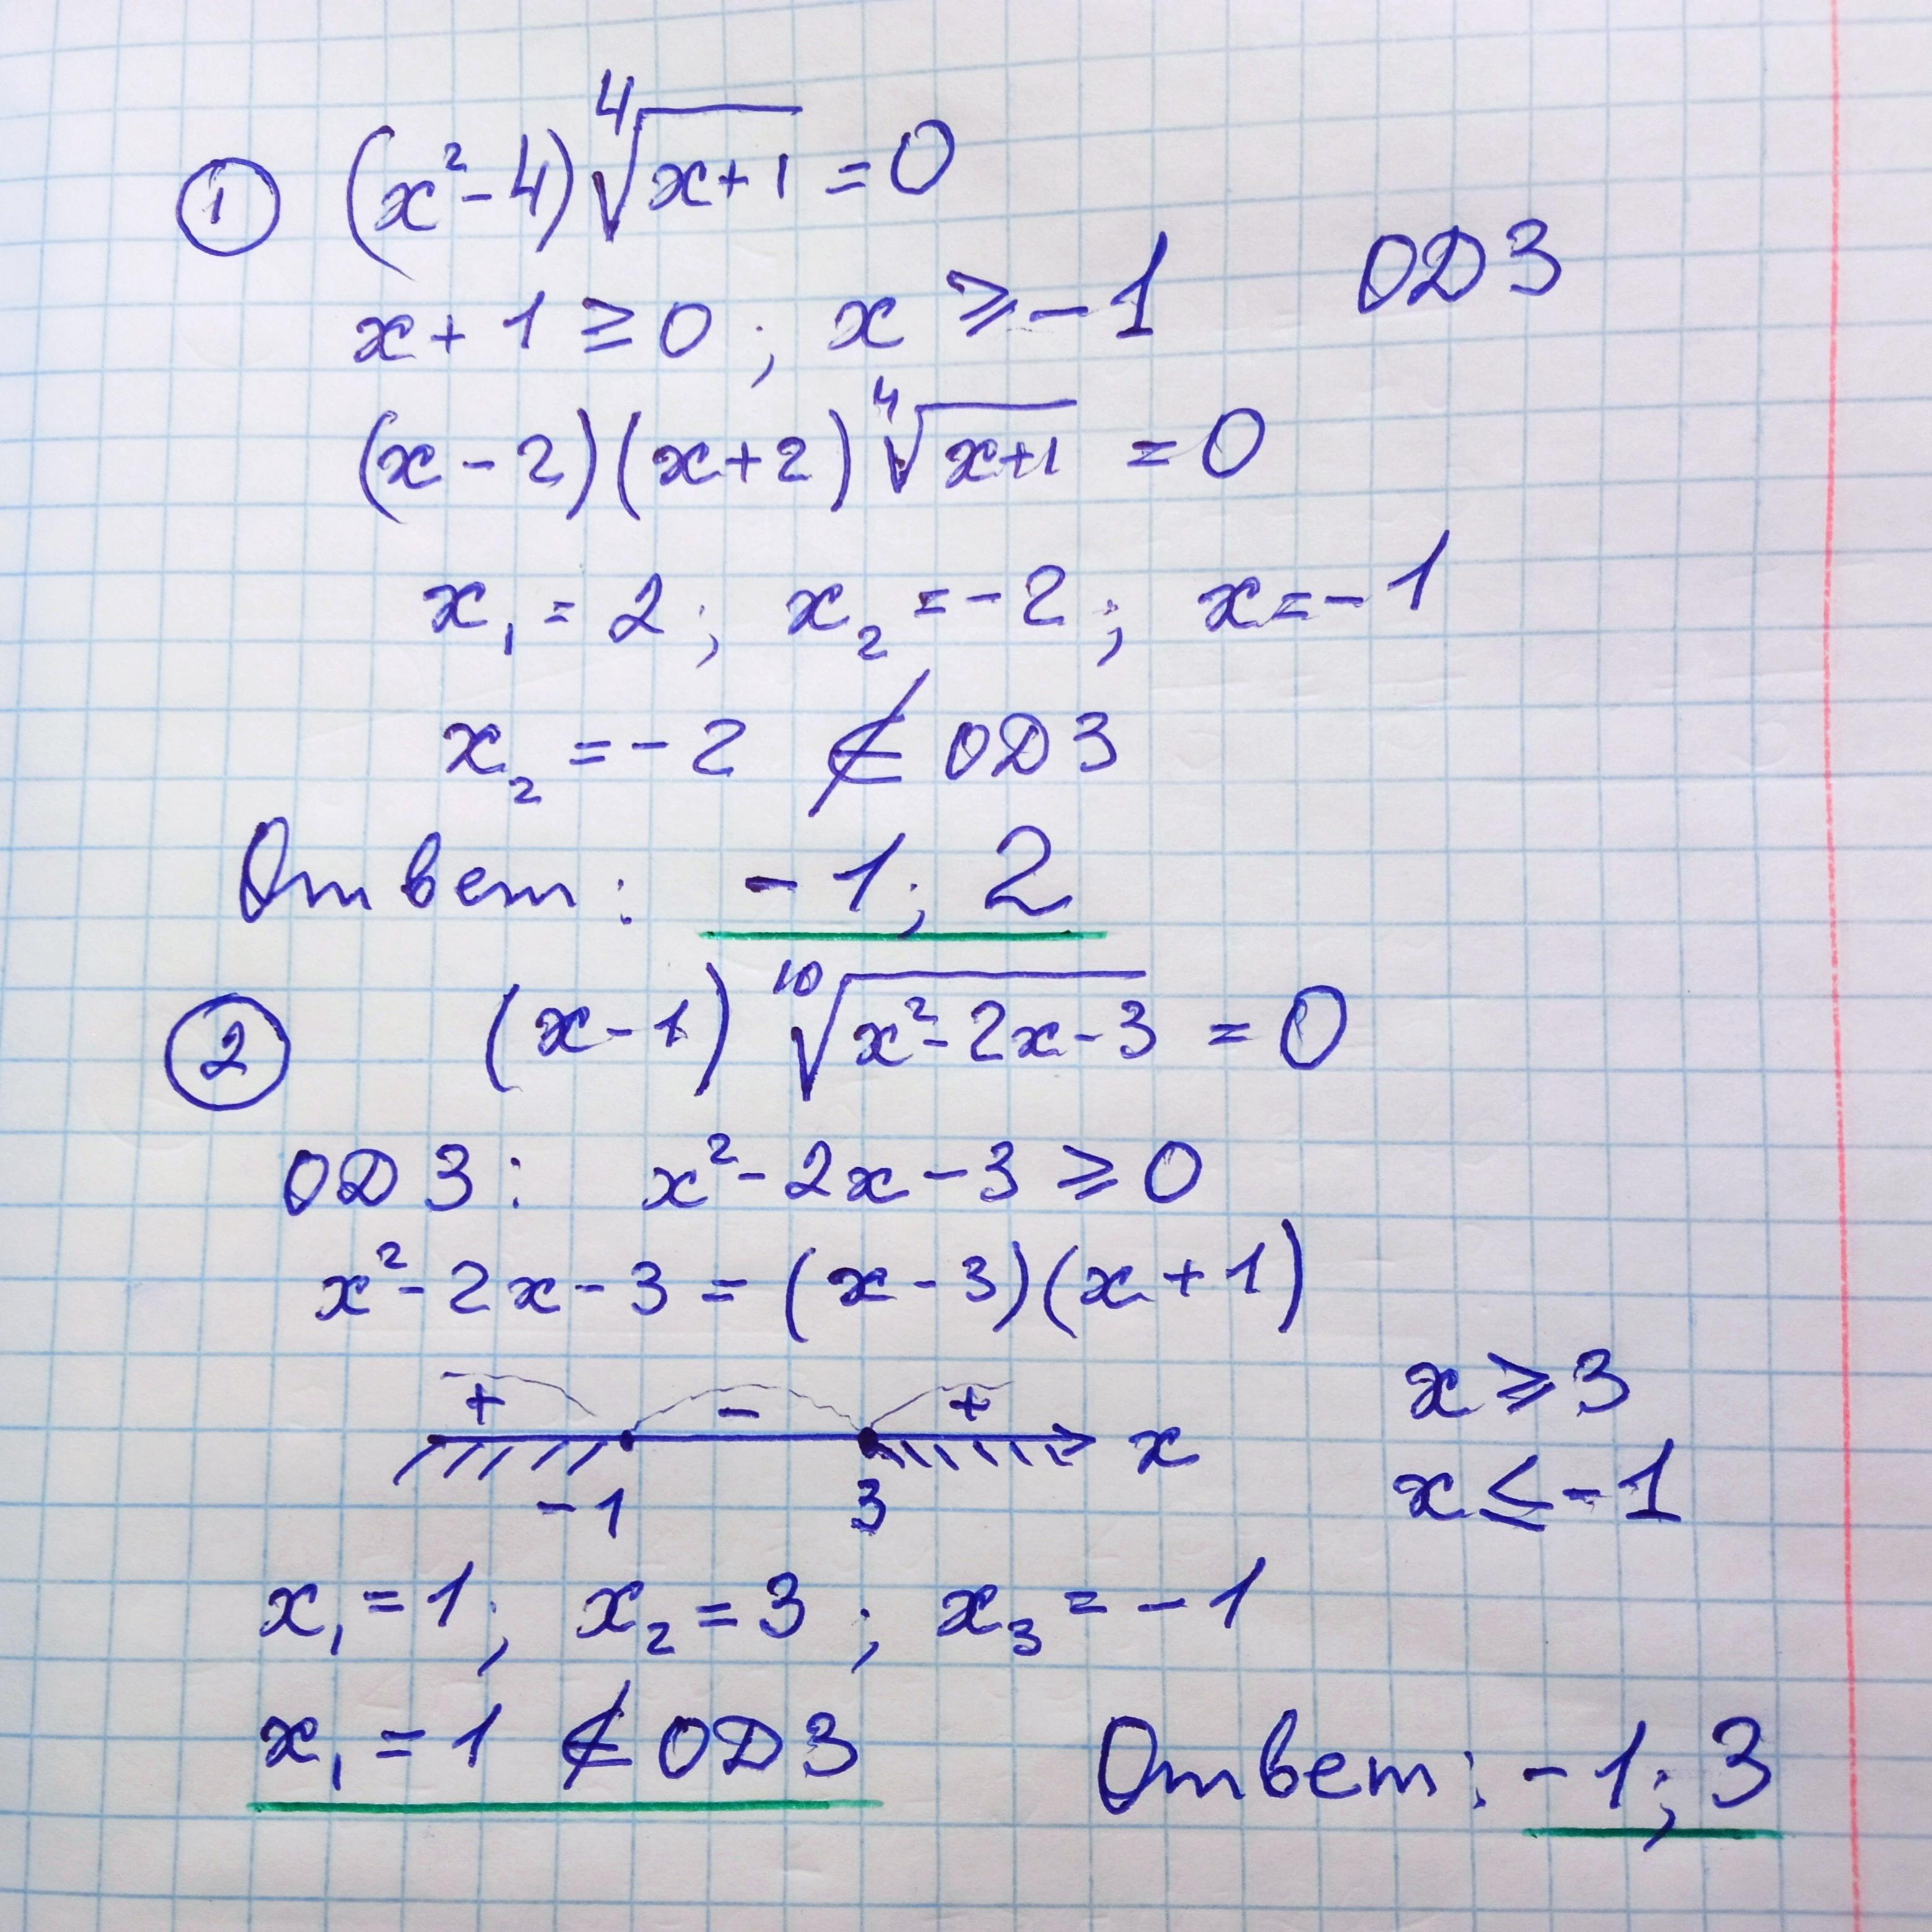 ① (x²-4)⁴√(x+1) = 0
x+1 ≥ 0; x ≥ -1 ОДЗ
(x-2)(x+2)⁴√(x+1) = 0
x₁ = 2; x₂ = -2; x = -1
x₂ = -2 ∉ ОДЗ
Ответ: -1; 2
② (x-1)¹⁰√(x²-2x-3) = 0
ОДЗ: x²-2x-3 ≥ 0
x²-2x-3 = (x-3)(x+1)
+ - + x
-1 3
x ≥ 3
x ≤ -1
x₁ = 1; x₂ = 3; x₃ = -1
x₁ = 1 ∉ ОДЗ Ответ: -1; 3